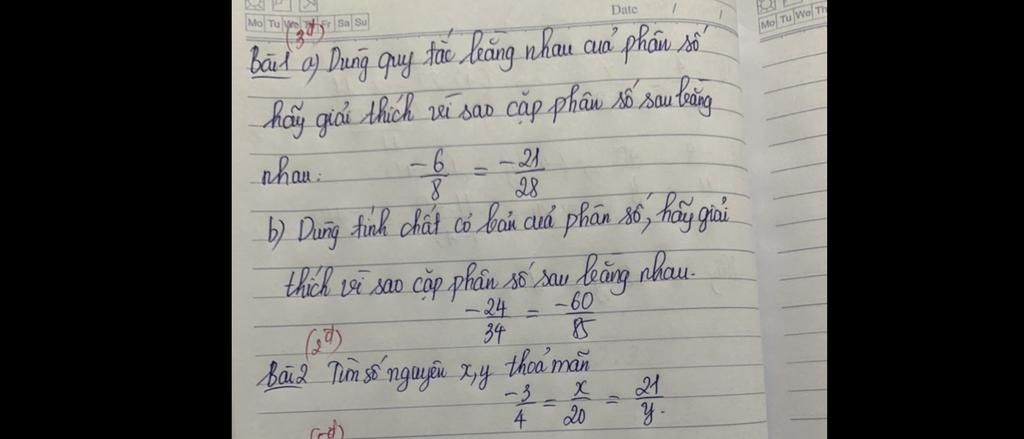 Date / /
Mo Tu We Th Fr Sa Su
Mo Tu We Th
(3đ)
Bài 1 a) Dùng quy tắc bằng nhau của phân số
hãy giải thích vì sao cặp phân số sau bằng
nhau: -6/8 = -21/28
b) Dùng tính chất cơ bản của phân số, hãy giải
thích vì sao cặp phân số sau bằng nhau.
-24/34 = -60/85
(2đ)
Bài 2 Tìm số nguyên x,y thoả mãn
-3/4 = x/20 = 21/y.